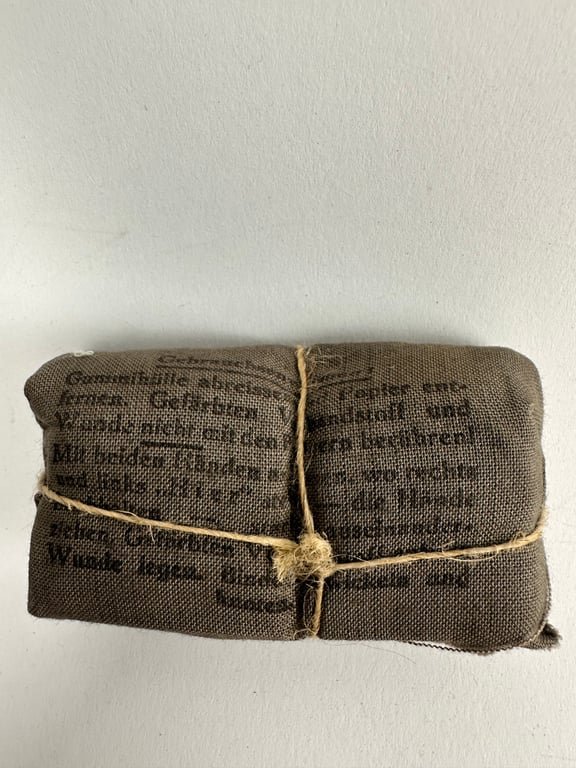 Gebrauchsanweisung!
Gummihülle abreissen Papier ent-
fernen. Gefärbten Verbandstoff und
Wunde nicht mit den Fingern berühren!
Mit beiden Händen wo rechts
und links „Hier" die Hände
auseinander-
ziehen. Gefärbten
Wunde legen. Binde wickeln und
knoten.